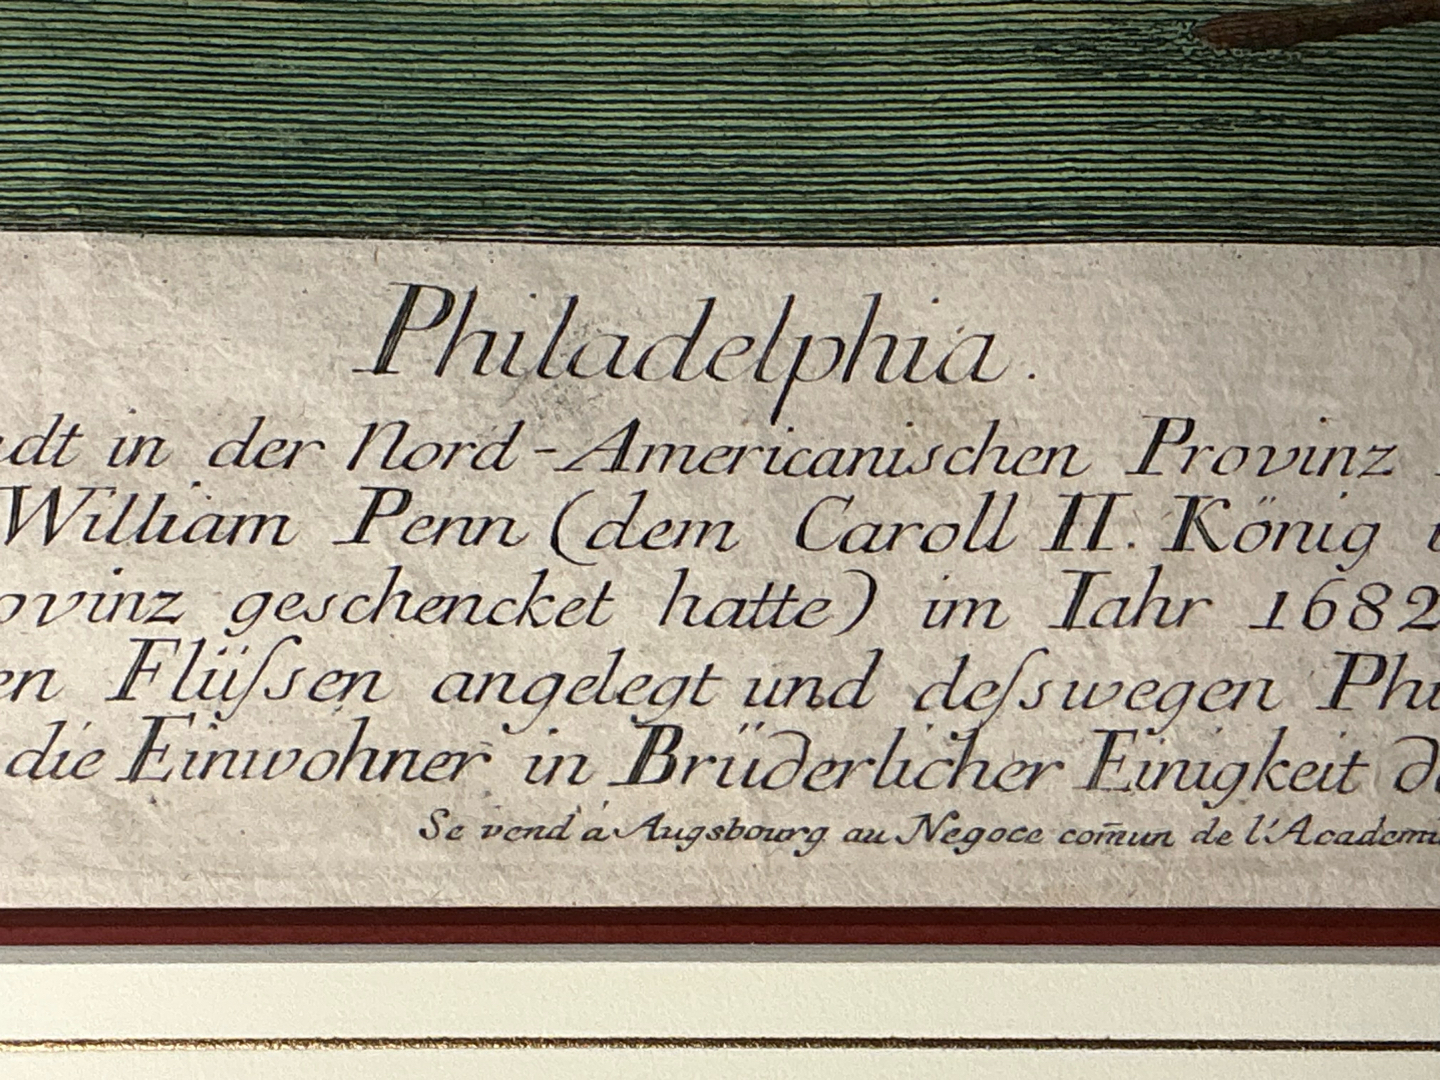 Philadelphia.
adt in der Nord-Americanischen Provinz
William Penn (dem Caroll II. König
ovinz geschencket hatte) im Iahr 1682
en Flüſsen angelegt und deſswegen Phi
die Einwohner in Brüderlicher Einigkeit d
Se vend à Augsbourg au Negoce com̄un de l'Academi